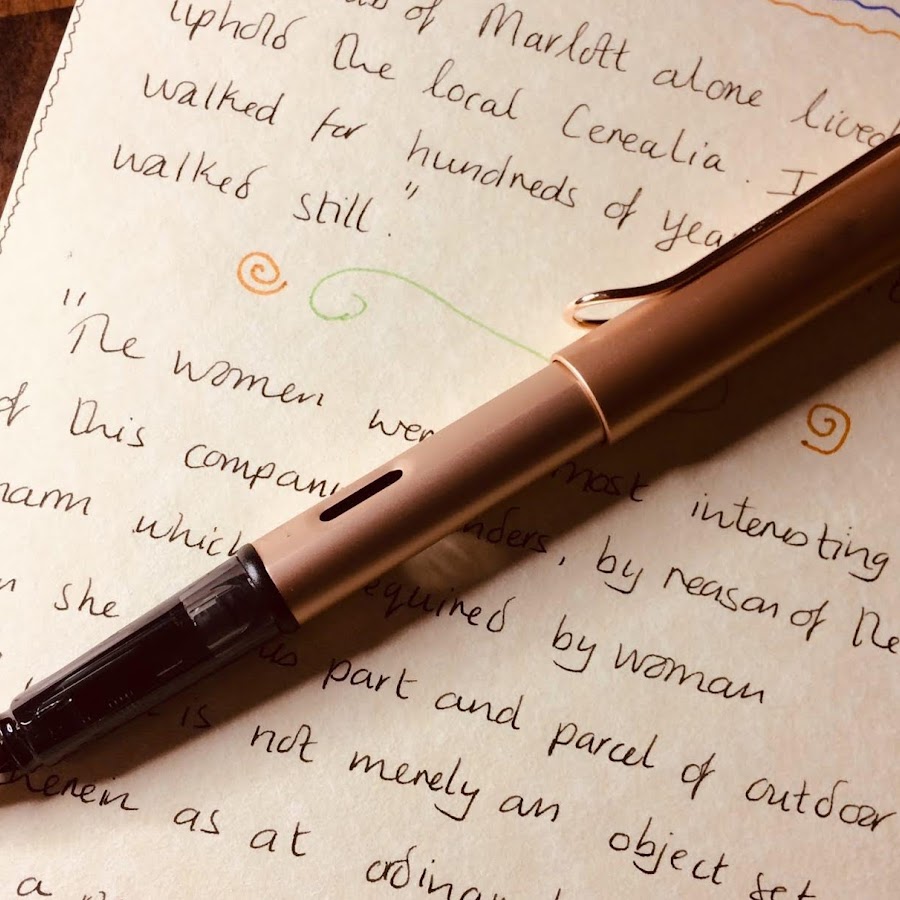 of Marlott alone lived
uphold the local Cerealia. I
walked for hundreds of yea
walked still."
"The women wer most interesting
of this compan nders, by reason of the
harm which equired by woman
she part and parcel of outdoor
is not merely an object set
therein as at ordinar
a